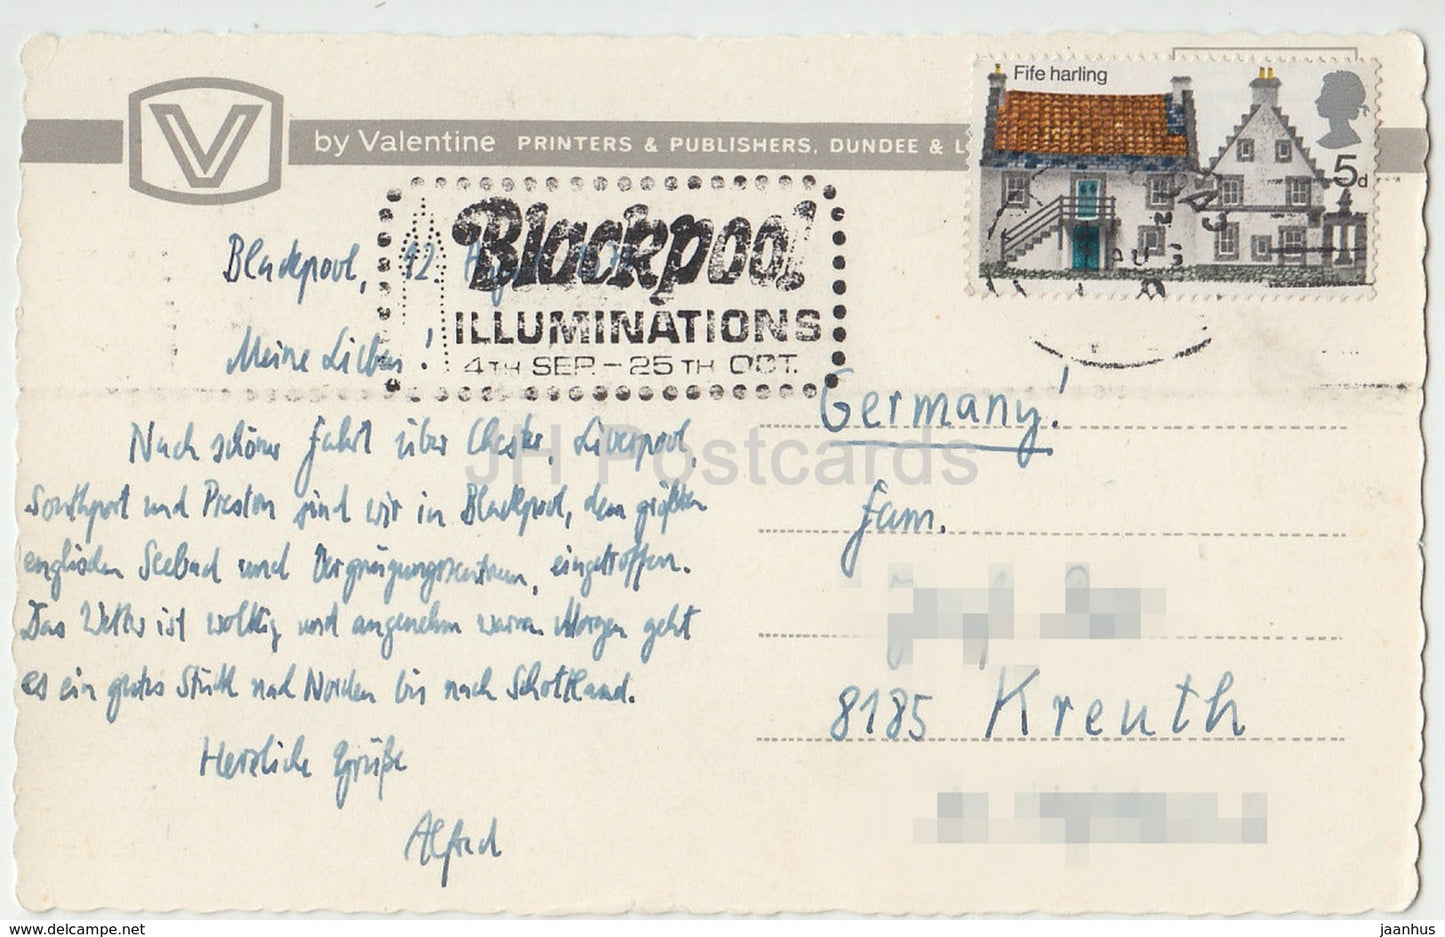 Fife harling
5d
V
by Valentine PRINTERS & PUBLISHERS, DUNDEE & L
Blackpool
ILLUMINATIONS
4TH SEP. – 25TH OCT.
Blackpool, 12.
Meine Lieben!
Nach schöner Fahrt über Chester, Liverpool,
Southport und Preston sind wir in Blackpool, dem größten
englischen Seebad und Vergnügungszentrum, eingetroffen.
Das Wetter ist wolkig und angenehm warm. Morgen geht
es ein gutes Stück nach Norden bis nach Schottland.
Herzliche Grüße
Alfred
Germany!
Fam.
8185 Kreuth
JH Postcards
www.delcampe.net
jaanhus